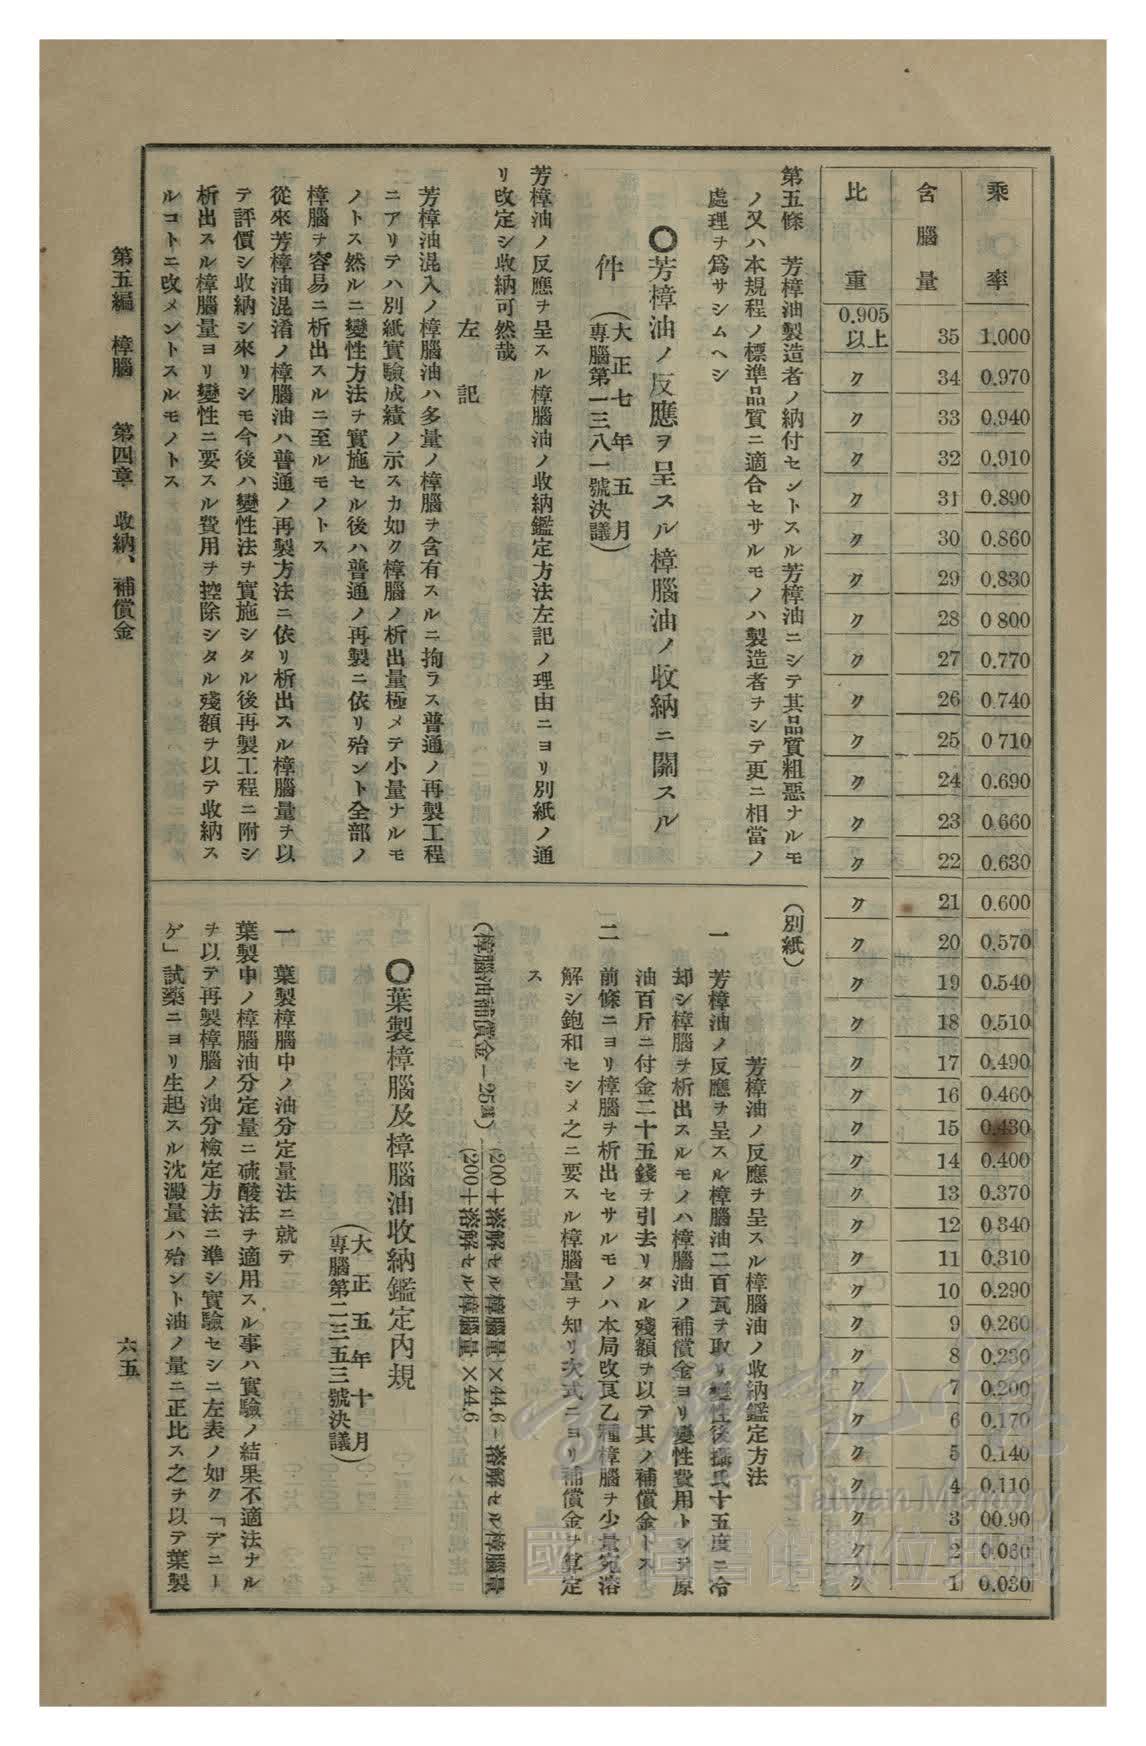 乘率 含腦量 比重
1.000 35 0.905以上
0.970 34 〃
0.940 33 〃
0.910 32 〃
0.890 31 〃
0.860 30 〃
0.830 29 〃
0 800 28 〃
0.770 27 〃
0.740 26 〃
0 710 25 〃
0.690 24 〃
0.660 23 〃
0.630 22 〃
0.600 21 〃
0.570 20 〃
0.540 19 〃
0.510 18 〃
0.490 17 〃
0.460 16 〃
0.430 15 〃
0.400 14 〃
0.370 13 〃
0.340 12 〃
0.310 11 〃
0.290 10 〃
0.260 9 〃
0.230 8 〃
0.200 7 〃
0.170 6 〃
0.140 5 〃
0.110 4 〃
00.90 3 〃
0.060 2 〃
0.030 1 〃
第五條 芳樟油製造者ノ納付セントスル芳樟油ニシテ其品質粗惡ナルモ
ノ又ハ本規程ノ標準品質ニ適合セサルモノハ製造者ヲシテ更ニ相當ノ
處理ヲ爲サシムヘシ
◯芳樟油ノ反應ヲ呈スル樟腦油ノ收納ニ關スル
件
(大正七年五月
專腦第一三八一號決議)
芳樟油ノ反應ヲ呈スル樟腦油ノ收納鑑定方法左記ノ理由ニヨリ別紙ノ通
リ改定シ收納可然哉
左記
芳樟油混入ノ樟腦油ハ多量ノ樟腦ヲ含有スルニ拘ラス普通ノ再製工程
ニアリテハ別紙實驗成績ノ示スカ如ク樟腦ノ析出量極メテ小量ナルモ
ノトス然ルニ變性方法ヲ實施セル後ハ普通ノ再製ニ依リ殆ント全部ノ
樟腦ヲ容易ニ析出スルニ至ルモノトス
從來芳樟油混淆ノ樟腦油ハ普通ノ再製方法ニ依リ析出スル樟腦量ヲ以
テ評價シ收納シ來リシモ今後ハ變性法ヲ實施シタル後再製工程ニ附シ
析出スル樟腦量ヨリ變性ニ要スル費用ヲ控除シタル殘額ヲ以テ收納ス
ルコトニ改メントスルモノトス
(別紙)
芳樟油ノ反應ヲ呈スル樟腦油ノ收納鑑定方法
一 芳樟油ノ反應ヲ呈スル樟腦油二百瓦ヲ取リ變性後攝氏十五度ニ冷
却シ樟腦ヲ析出スルモノハ樟腦油ノ補償金ヨリ變性費用トシテ原
油百斤ニ付金二十五錢ヲ引去リタル殘額ヲ以テ其ノ補償金トス
二 前條ニヨリ樟腦ヲ析出セサルモノハ本局改良乙種樟腦ヲ少量宛溶
解シ飽和セシメ之ニ要スル樟腦量ヲ知リ次式ニヨリ補償金ヲ算定
ス
(樟腦油補償金－25錢) (200＋溶解セル樟腦量)×44.6－溶解セル樟腦量
(200＋溶解セル樟腦量)×44.6
◯葉製樟腦及樟腦油收納鑑定內規
(大正五年十月
專腦第二三五三號決議)
一 葉製樟腦中ノ油分定量法ニ就テ
葉製中ノ樟腦油分定量ニ硫酸法ヲ適用スル事ハ實驗ノ結果不適法ナル
ヲ以テ再製樟腦ノ油分檢定方法ニ準シ實驗セシニ左表ノ如ク「デニー
ゲ」試藥ニヨリ生起スル沈澱量ハ殆ント油ノ量ニ正比ス之ヲ以テ葉製
第五編 樟腦 第四章 收納、補償金
六五
Taiwan Memory
國家圖書館數位典藏